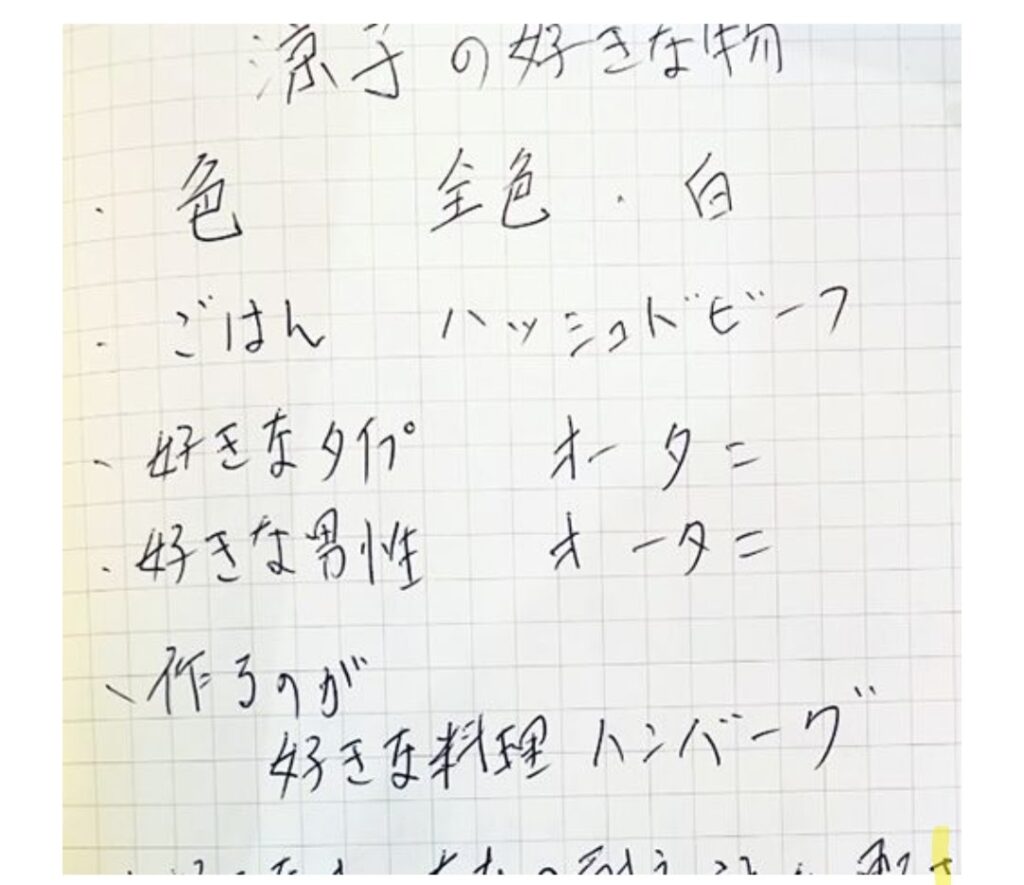 涼子の好きな物
・色 全色・白
・ごはん ハッシュドビーフ
・好きなタイプ オータニ
・好きな男性 オータニ
・作るのが
好きな料理 ハンバーグ